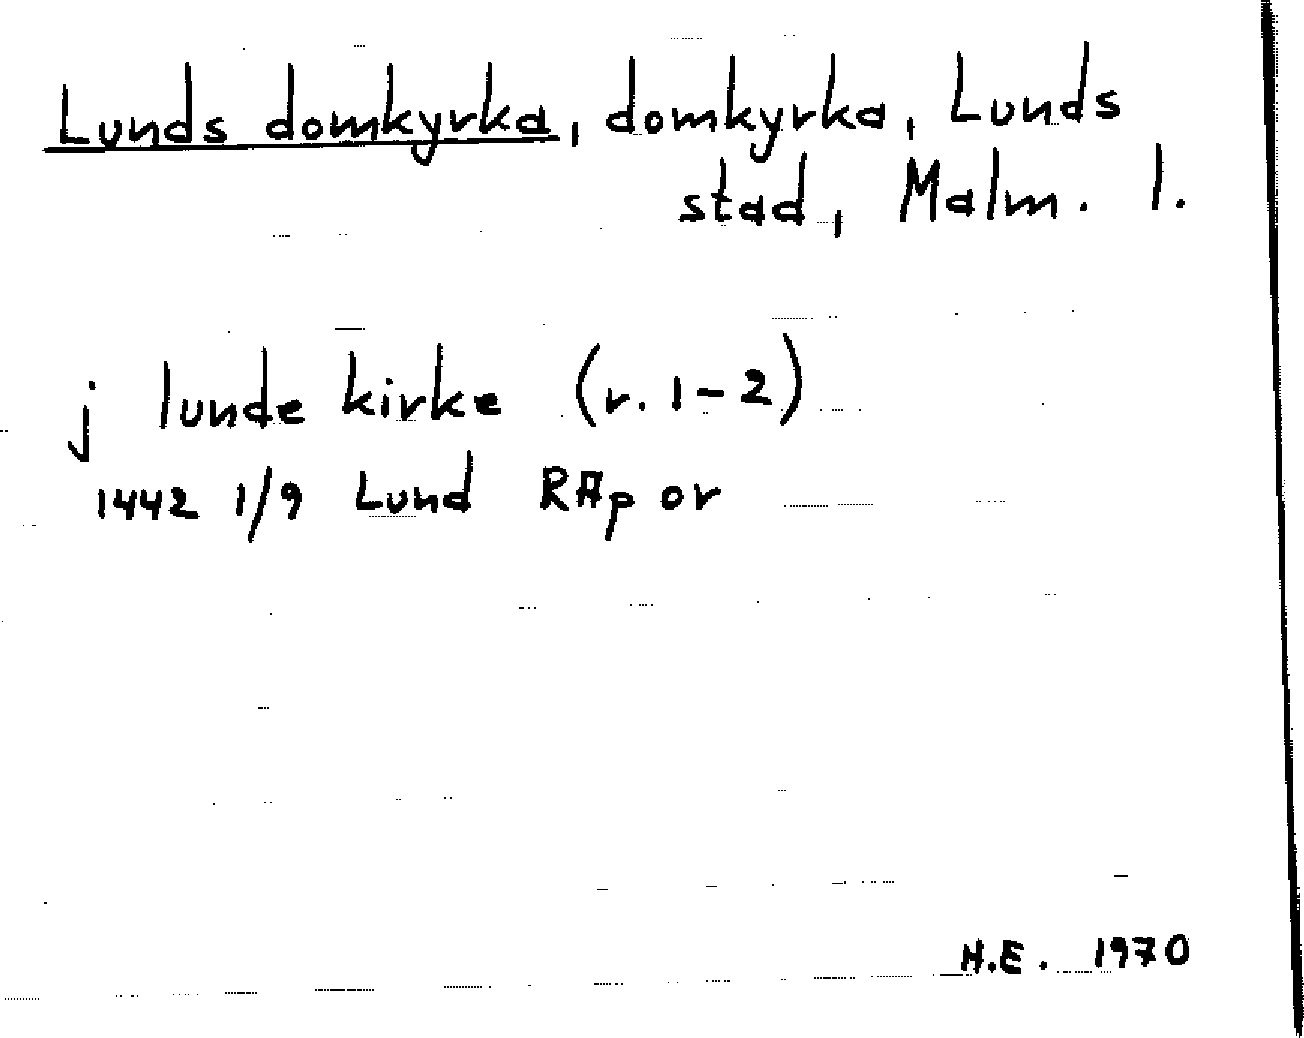 Lunds domkyrka, domkyrka, Lunds
stad, Malm. l.
j lunde kirke (r. 1-2)
1442 1/9 Lund RAp or
H.E. 1970